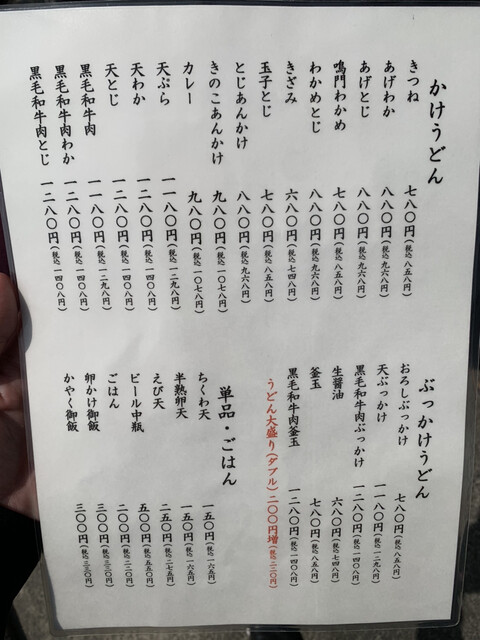 かけうどん
きつね 七八〇円(税込 八五八円)
あげわか 八八〇円(税込 九六八円)
あげとじ 八八〇円(税込 九六八円)
鳴門わかめ 七八〇円(税込 八五八円)
わかめとじ 八八〇円(税込 九六八円)
きざみ 六八〇円(税込 七四八円)
玉子とじ 七八〇円(税込 八五八円)
とじあんかけ 八八〇円(税込 九六八円)
きのこあんかけ 九八〇円(税込 一〇七八円)
カレー 九八〇円(税込 一〇七八円)
天ぷら 一一八〇円(税込 一二九八円)
天わか 一二八〇円(税込 一四〇八円)
天とじ 一二八〇円(税込 一四〇八円)
黒毛和牛肉 一一八〇円(税込 一二九八円)
黒毛和牛肉わか 一二八〇円(税込 一四〇八円)
黒毛和牛肉とじ 一二八〇円(税込 一四〇八円)
ぶっかけうどん
おろしぶっかけ 七八〇円(税込 八五八円)
天ぶっかけ 一一八〇円(税込 一二九八円)
黒毛和牛肉ぶっかけ 一二八〇円(税込 一四〇八円)
生醤油 六八〇円(税込 七四八円)
釜玉 七八〇円(税込 八五八円)
黒毛和牛肉釜玉 一二八〇円(税込 一四〇八円)
うどん大盛り(ダブル)二〇〇円増(税込 二二〇円)
単品・ごはん
ちくわ天 一五〇円(税込 一六五円)
半熟卵天 一五〇円(税込 一六五円)
えび天 二五〇円(税込 二七五円)
ビール中瓶 五〇〇円(税込 五五〇円)
ごはん 二〇〇円(税込 二二〇円)
卵かけ御飯 三〇〇円(税込 三三〇円)
かやく御飯 三〇〇円(税込 三三〇円)